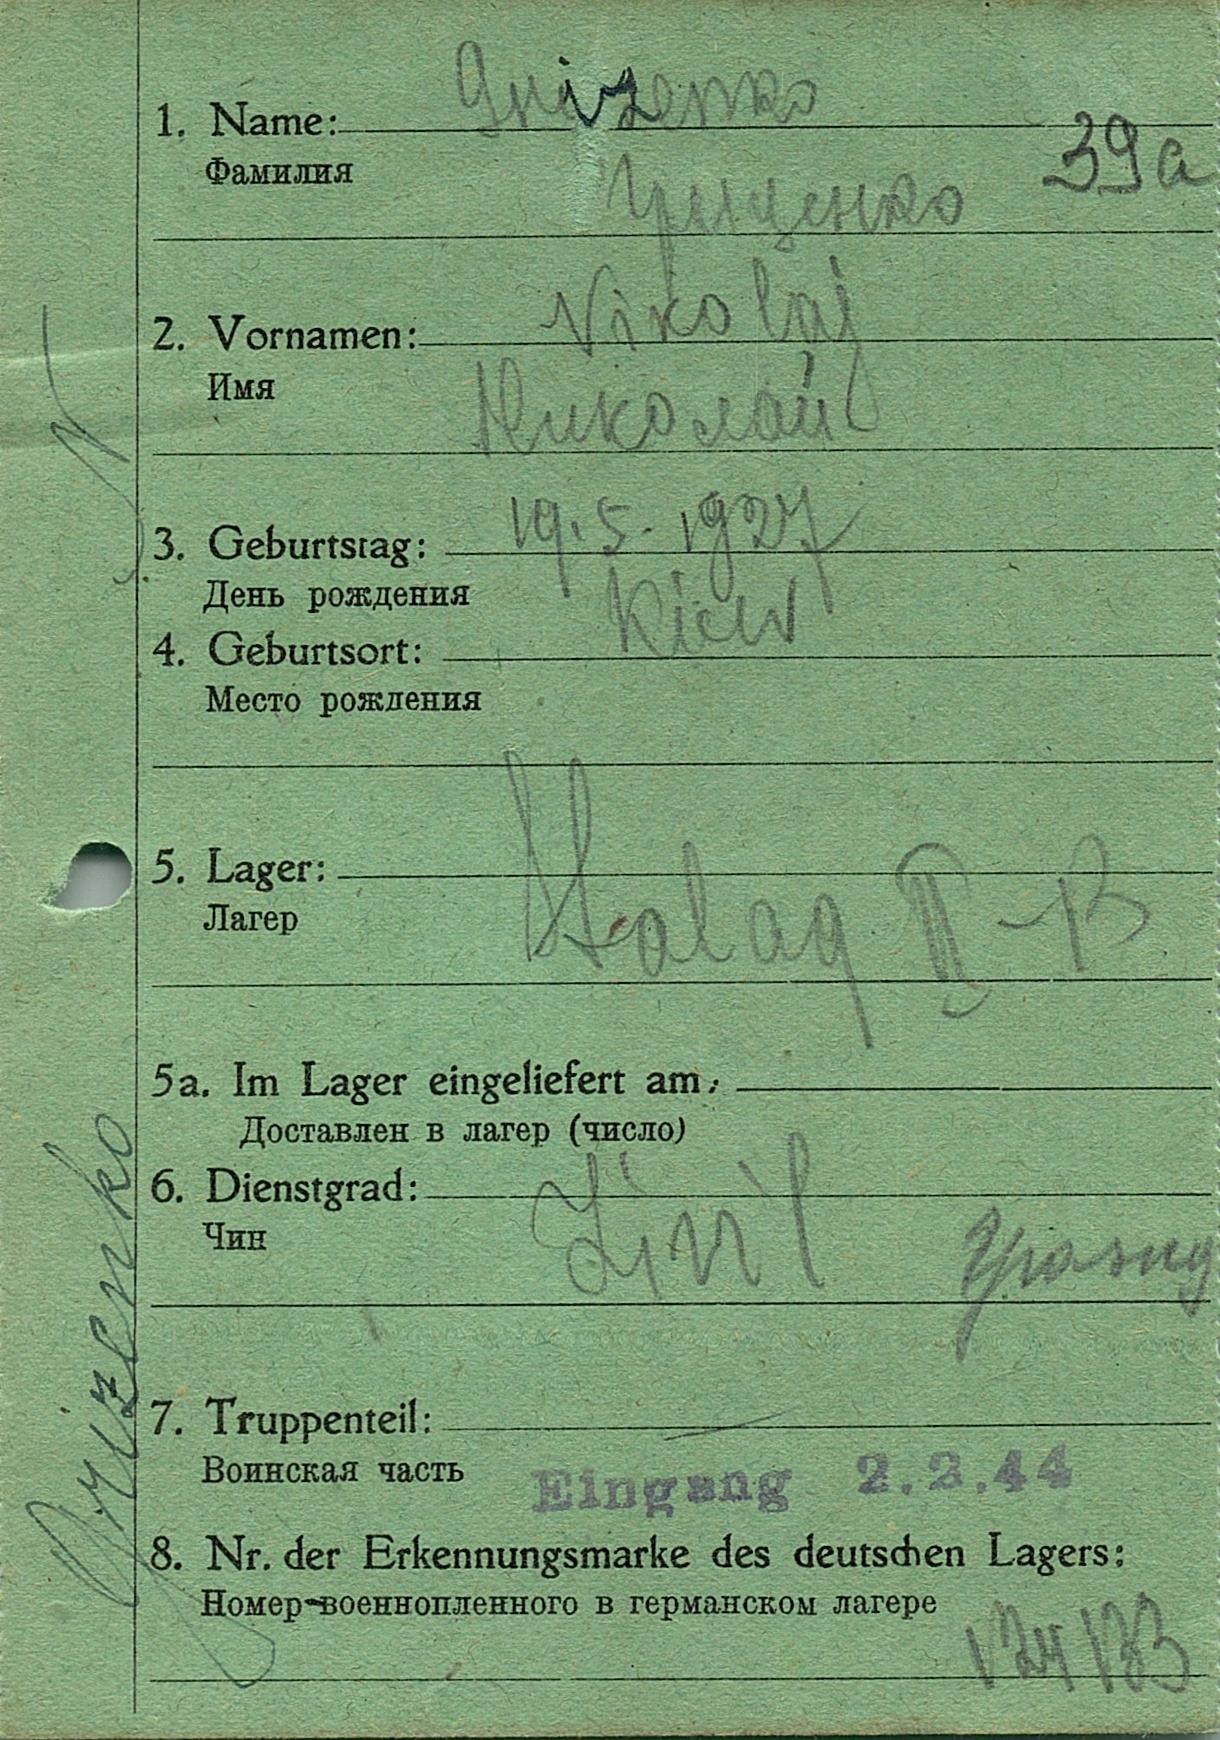 1. Name: Grizenko
Фамилия
39a
Грищенко
2. Vornamen: Nikolaj
Имя
Николай
3. Geburtstag: 19.5.1927
День рождения
Kiew
4. Geburtsort:
Место рождения
5. Lager: Stalag II-B
Лагер
5a. Im Lager eingeliefert am:
Доставлен в лагер (число)
6. Dienstgrad: Zivil
Чин
7. Truppenteil: —
Воинская часть
Eingang 2.2.44
8. Nr. der Erkennungsmarke des deutschen Lagers:
Номер военнопленного в германском лагере
Grizenko